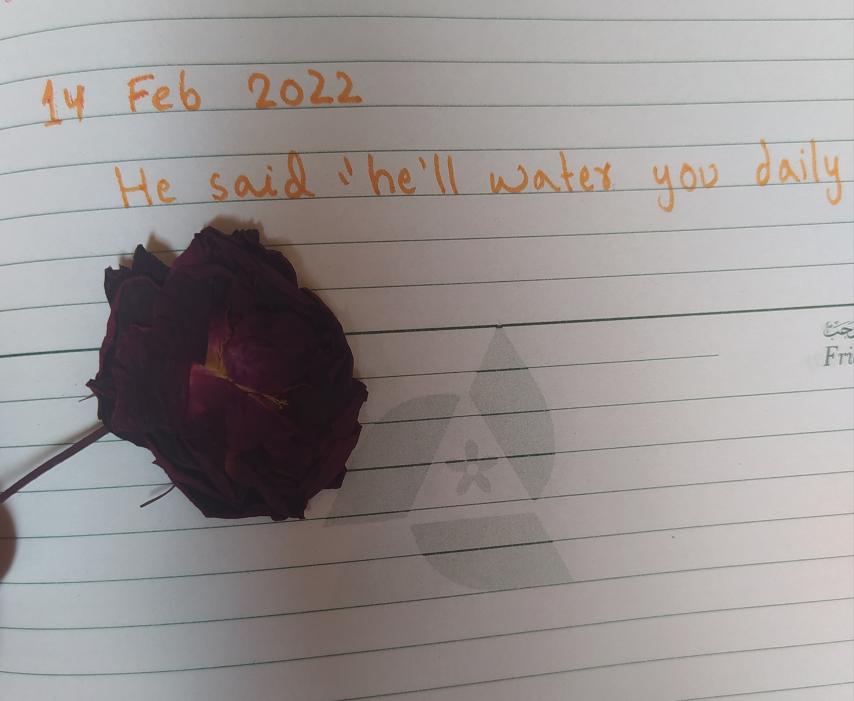 14 Feb 2022
He said "he'll water you daily
Fri